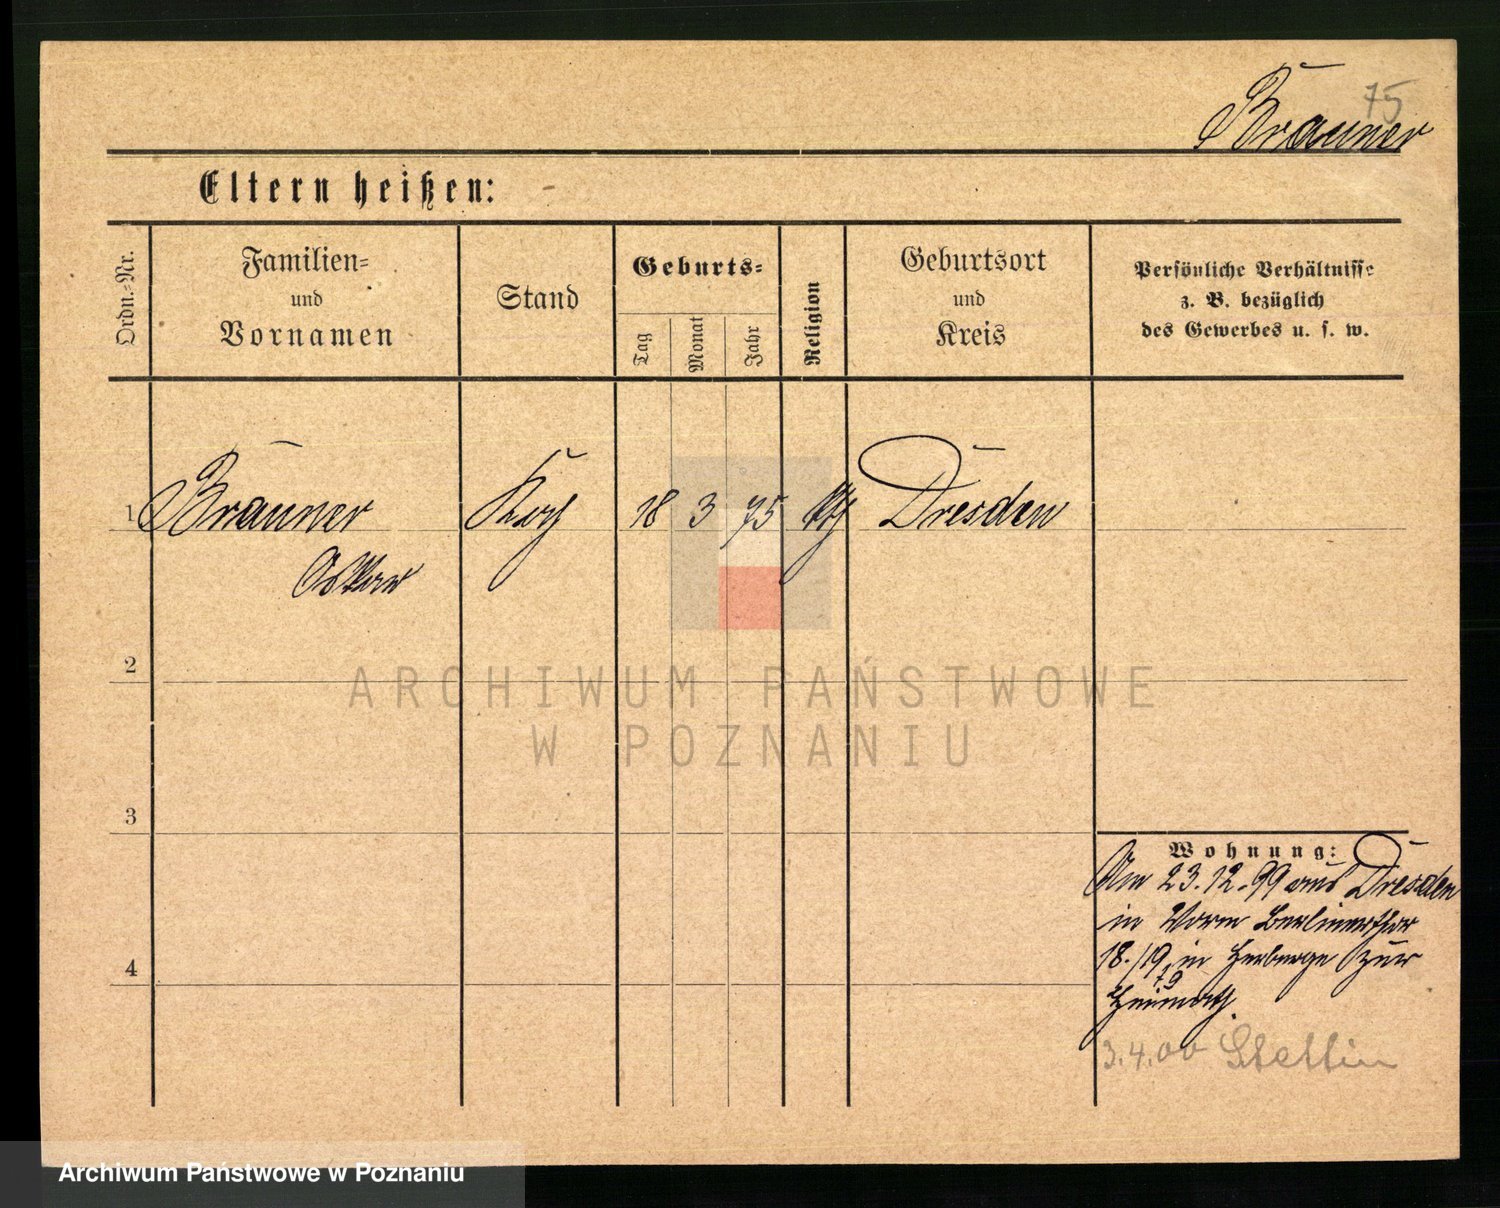 75
Brauner
Eltern heißen: -
Ordn.-Nr.
Familien-
und
Vornamen
Stand
Geburts-
Tag
Monat
Jahr
Religion
Geburtsort
und
Kreis
Persönliche Verhältnisse
z. B. bezüglich
des Gewerbes u. s. w.
1 Brauner Koch 18 3 75 Dresden
Oskar
2
ARCHIWUM PAŃSTWOWE
W POZNANIU
3
Wohnung:
Am 23.12.99 aus Dresden
in Berlinerthor
18./19, in Herberge zur
Heimath.
4
3.4.00 Stettin
Archiwum Państwowe w Poznaniu